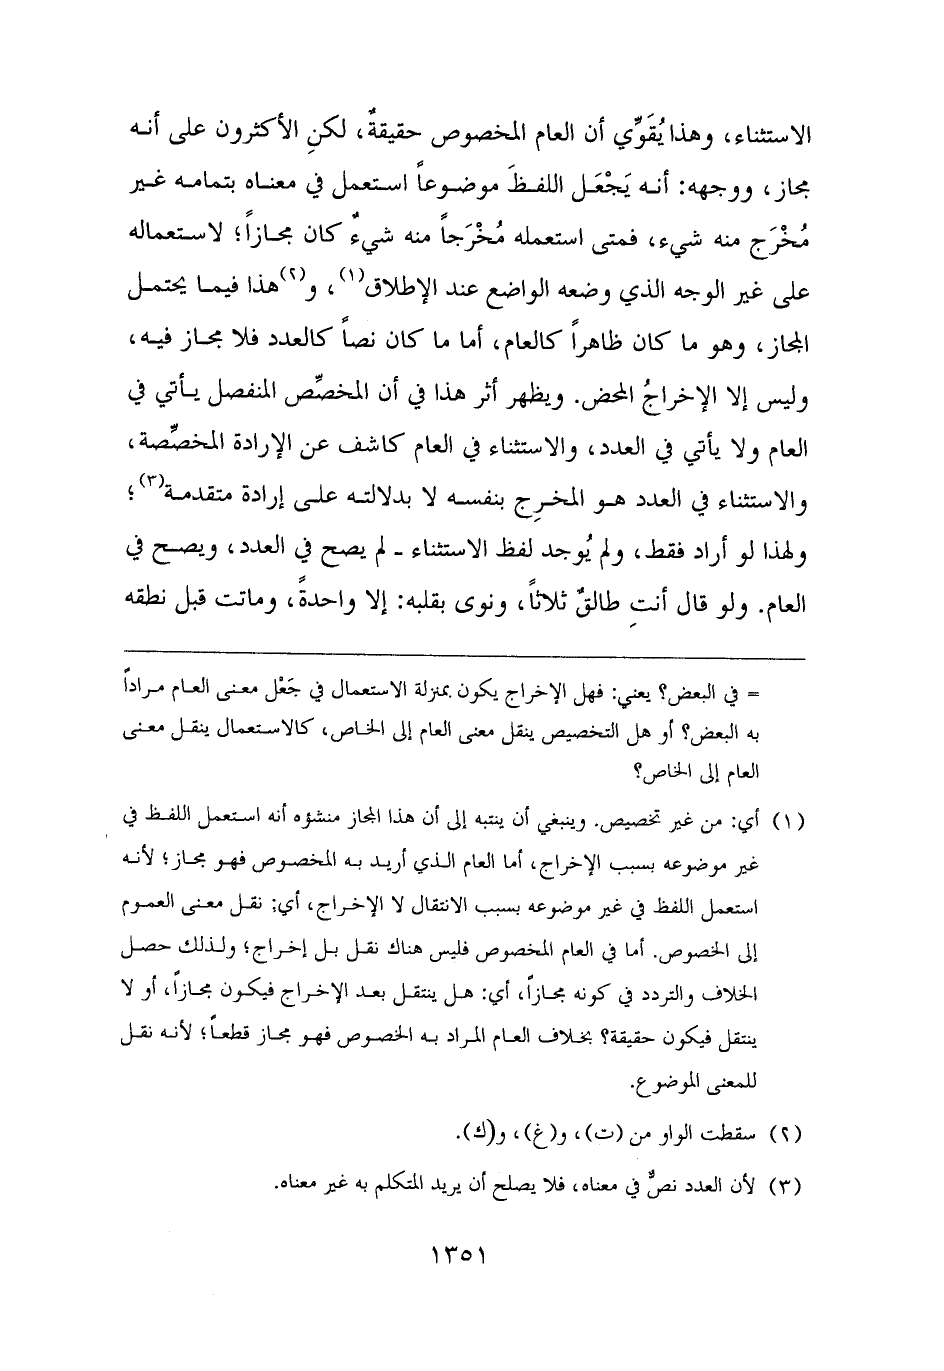 الاستثناء، وهذا يُقَوِّي أن العام المخصوص حقيقةٌ، لكنِ الأكثرون على أنه
مجاز، ووجهه: أنه يَجْعَل اللفظَ موضوعاً استعمل في معناه بتمامه غير
مُخْرَج منه شيء، فمتى استعمله مُخْرَجاً منه شيءٌ كان مجازاً؛ لاستعماله
على غير الوجه الذي وضعه الواضع عند الإطلاق(١)، و(٢)هذا فيما يحتمل
المجاز، وهو ما كان ظاهراً كالعام، أما ما كان نصاً كالعدد فلا مجاز فيه،
وليس إلا الإخراجُ المحض. ويظهر أثر هذا في أن المخصِّص المنفصل يأتي في
العام ولا يأتي في العدد، والاستثناء في العام كاشف عن الإرادة المخصِّصة،
والاستثناء في العدد هو المخرِج بنفسه لا بدلالته على إرادة متقدمة(٣)؛
ولهذا لو أراد فقط، ولم يُوجد لفظ الاستثناء - لم يصح في العدد، ويصح في
العام. ولو قال أنتِ طالقٌ ثلاثاً، ونوى بقلبه: إلا واحدةً، وماتت قبل نطقه
= في البعض؟ يعني: فهل الإخراج يكون بمنزلة الاستعمال في جَعْل معنى العام مراداً
به البعض؟ أو هل التخصيص ينقل معنى العام إلى الخاص، كالاستعمال ينقل معنى
العام إلى الخاص؟
(١) أي: من غير تخصيص. وينبغي أن ينتبه إلى أن هذا المجاز منشؤه أنه استعمل اللفظ في
غير موضوعه بسبب الإخراج، أما العام الذي أريد به المخصوص فهو مجاز؛ لأنه
استعمل اللفظ في غير موضوعه بسبب الانتقال لا الإخراج، أي: نقل معنى العموم
إلى الخصوص. أما في العام المخصوص فليس هناك نقل بل إخراج؛ ولذلك حصل
الخلاف والتردد في كونه مجازاً، أي: هل ينتقل بعد الإخراج فيكون مجازاً، أو لا
ينتقل فيكون حقيقة؟ بخلاف العام المراد به الخصوص فهو مجاز قطعاً؛ لأنه نقل
للمعنى الموضوع.
(٢) سقطت الواو من (ت)، و(غ)، و(ك).
(٣) لأن العدد نصٌّ في معناه، فلا يصلح أن يريد المتكلم به غير معناه.
١٣٥١